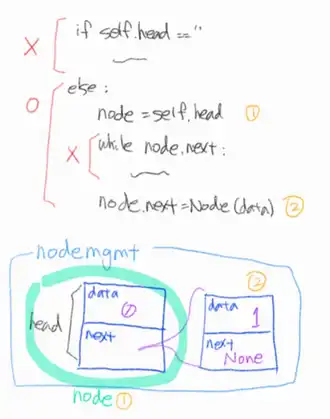 X if self.head == ''
O else :
node = self.head ①
X while node.next :
node.next = Node(data) ②
nodemgmt
②
data 0
data 1
head
next
next
None
node ①